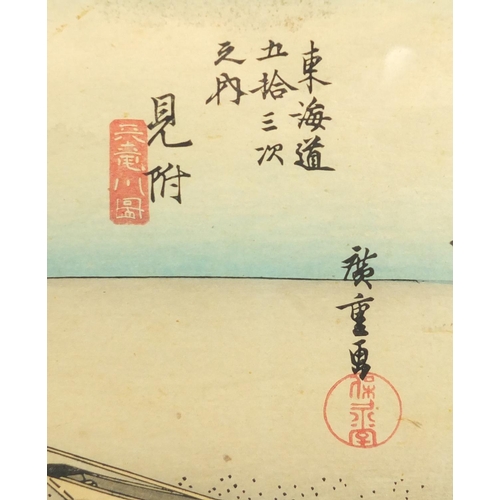 東海道
五拾三次
之内
見附
天竜川圖
廣重画
保永堂